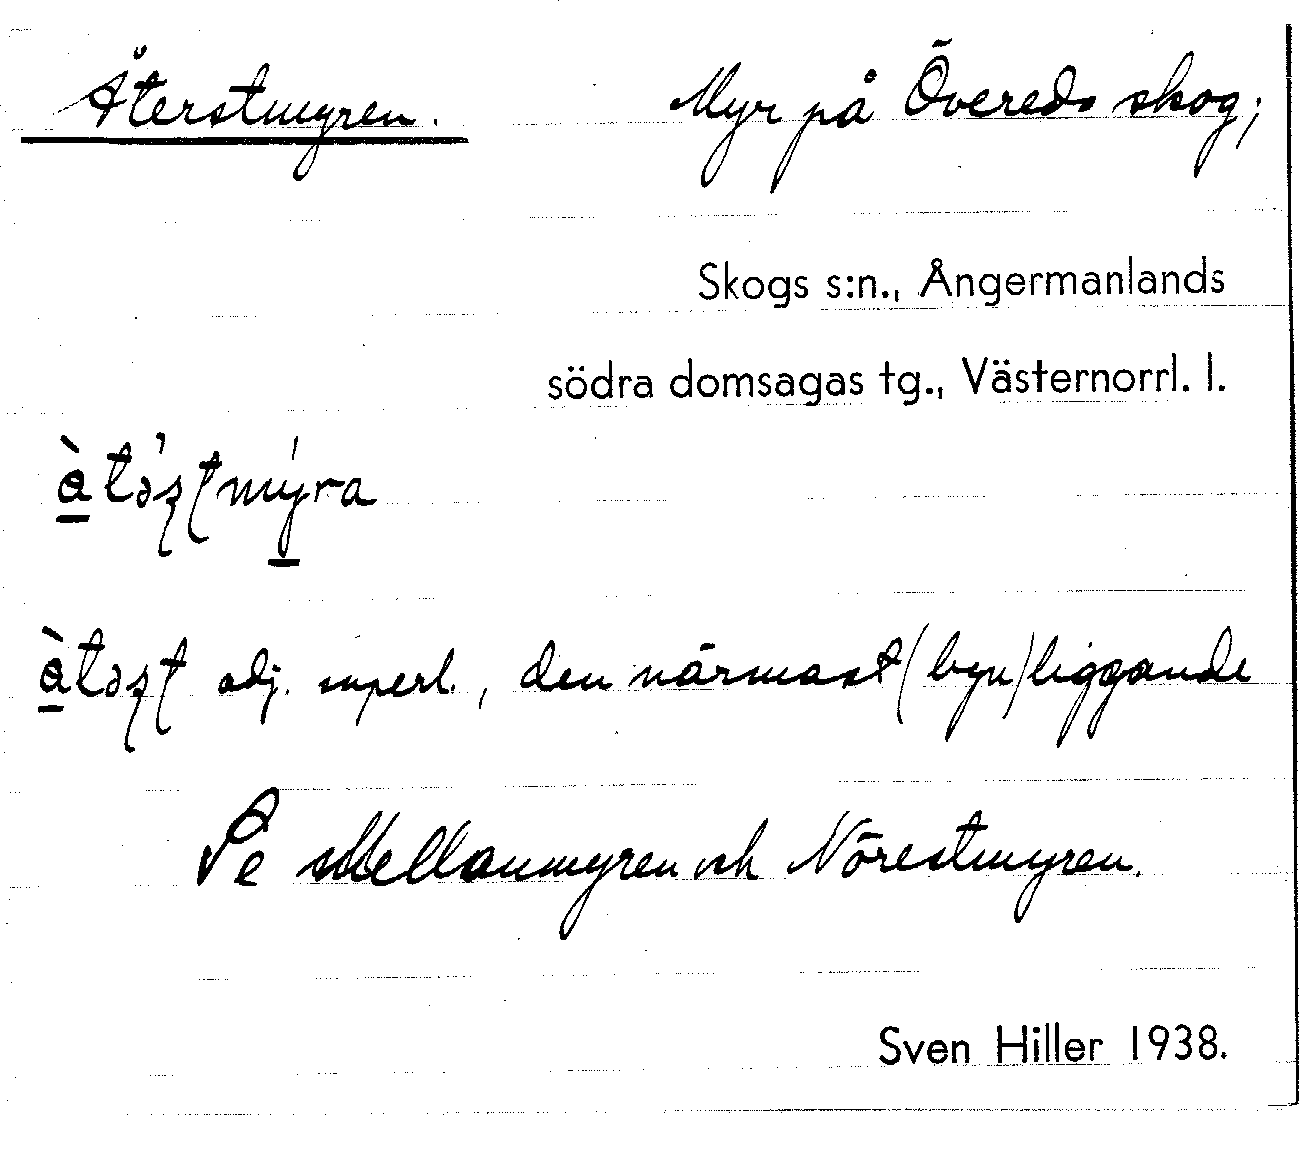 Återstmyren. Myr på Övereds skog;
Skogs s:n., Ångermanlands
södra domsagas tg., Västernorrl. l.
àtə'ʂʈmý̲ra
àtəʂʈ adj. superl., den närmast (byn) liggande
Se Mellanmyren och Nörestmyren.
Sven Hiller 1938.